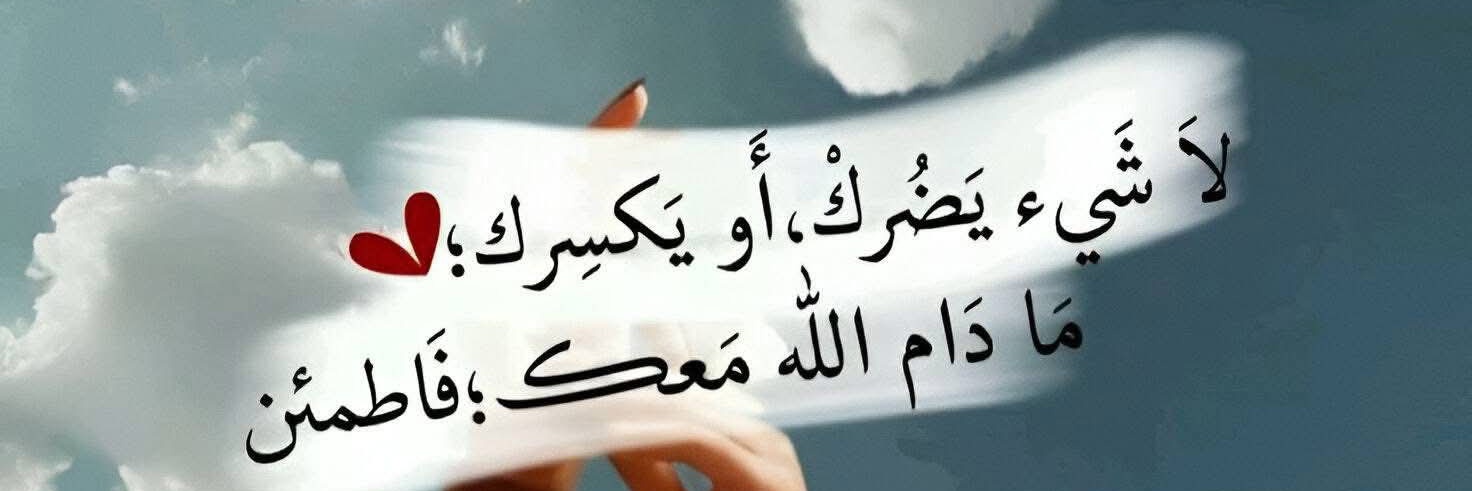 لاَ شَيء يَضُركْ،أَو يَكسِرك؛
مَا دَام الله مَعك؛فَاطمئن